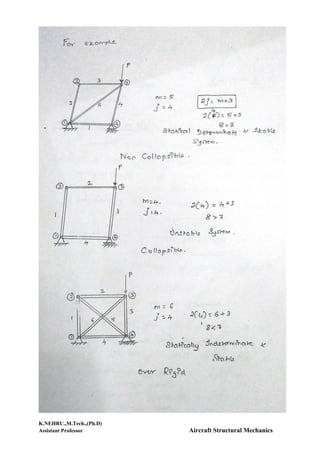 For example
P
3
3 5 4
1
m = 5
j = 4
2j = m+3
2(4) = 5+3
8 = 8
Statical Determinate & Stable
System.
Non Collapsible.
P
2
1 3
4
m=4.
j=4.
2(4) = 4+3
8 > 7
Unstable System.
Collapsible.
P
2
1 6 5 3
4
m = 6
j = 4
2(4) = 6+3
8<7
Statically Indeterminate &
Stable
Over Rigid
K.NEHRU.,M.Tech.,(Ph.D)
Assistant Professor Aircraft Structural Mechanics